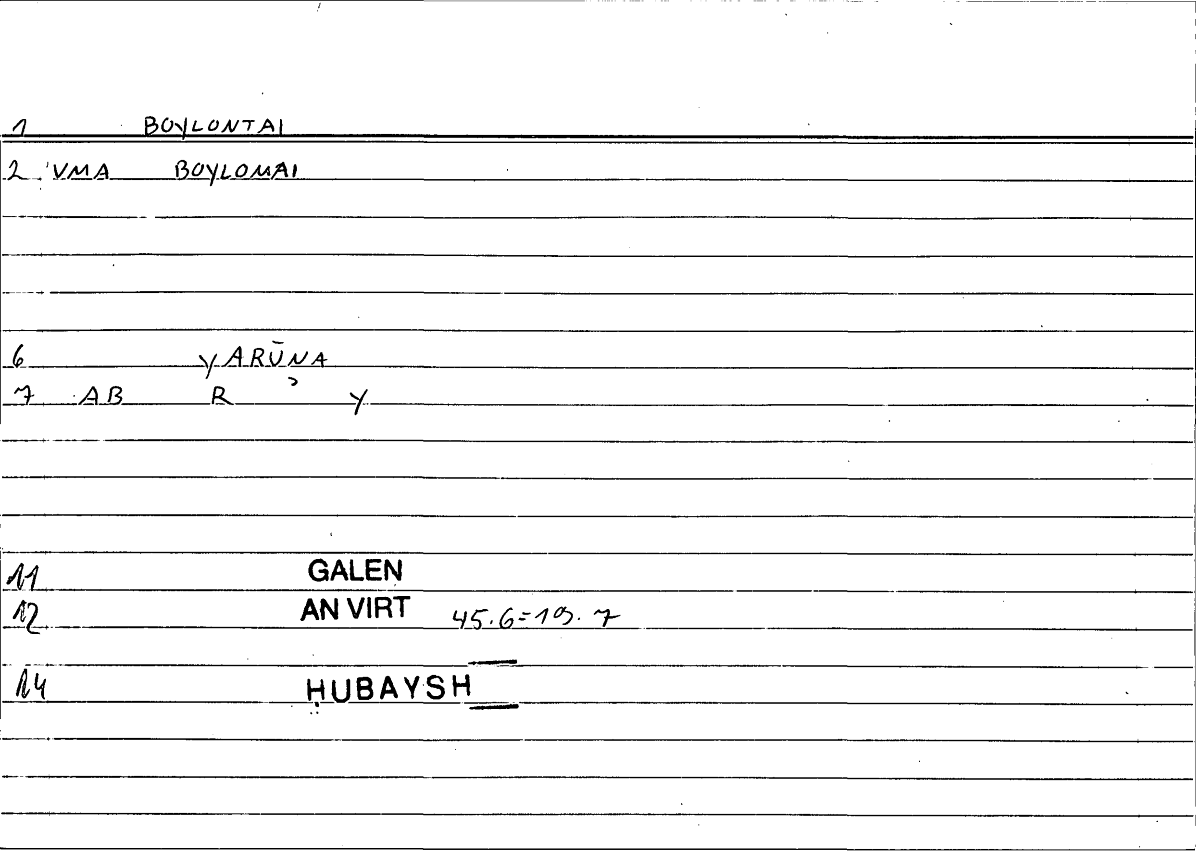 1 BOYLONTAI
2 VMA BOYLOMAI
6 YARŪNA
7 AB R ʾ Y
11 GALEN
12 AN VIRT 45.6=19.7
14 ḤUBAYSH